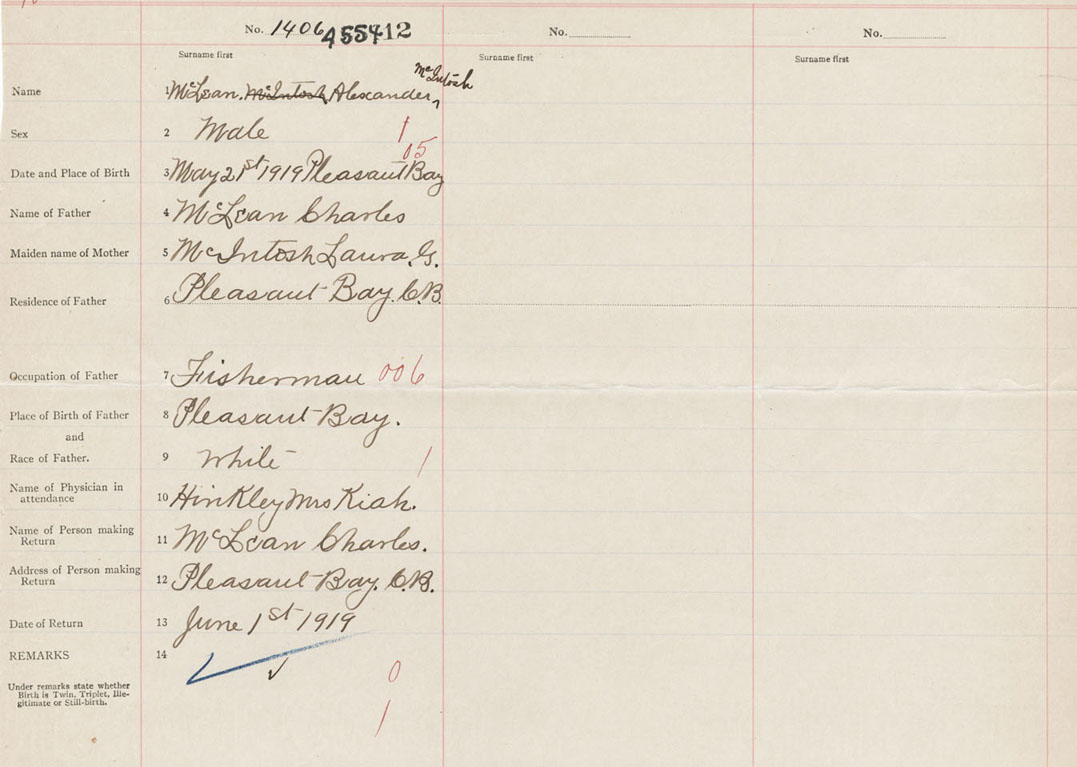 No. 1406 455412 No. No.
Surname first Surname first Surname first
McIntosh
Name 1 McLean. McIntosh Alexander,
Sex 2 Male 1
05
Date and Place of Birth 3 May 21st 1919 Pleasant Bay
Name of Father 4 McLean Charles
Maiden name of Mother 5 McIntosh Laura. G.
Residence of Father 6 Pleasant Bay. C.B.
Occupation of Father 7 Fisherman 006
Place of Birth of Father 8 Pleasant Bay.
and
Race of Father. 9 White 1
Name of Physician in
attendance 10 Hinkley Mrs Kiah.
Name of Person making
Return 11 McLean Charles.
Address of Person making
Return 12 Pleasant Bay. C.B.
Date of Return 13 June 1st 1919
REMARKS 14
0
Under remarks state whether
Birth is Twin, Triplet, Ille-
gitimate or Still-birth.
1